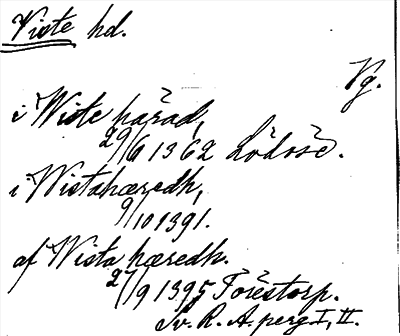 Viste hd.
Vg.
i Wiste harad,
29/6 1362 Lödöse.
i Wistahæredh,
9/10 1391.
af Wista hæredh.
27/9 1395 Forestorp.
Sv. R. A. perg I, II.